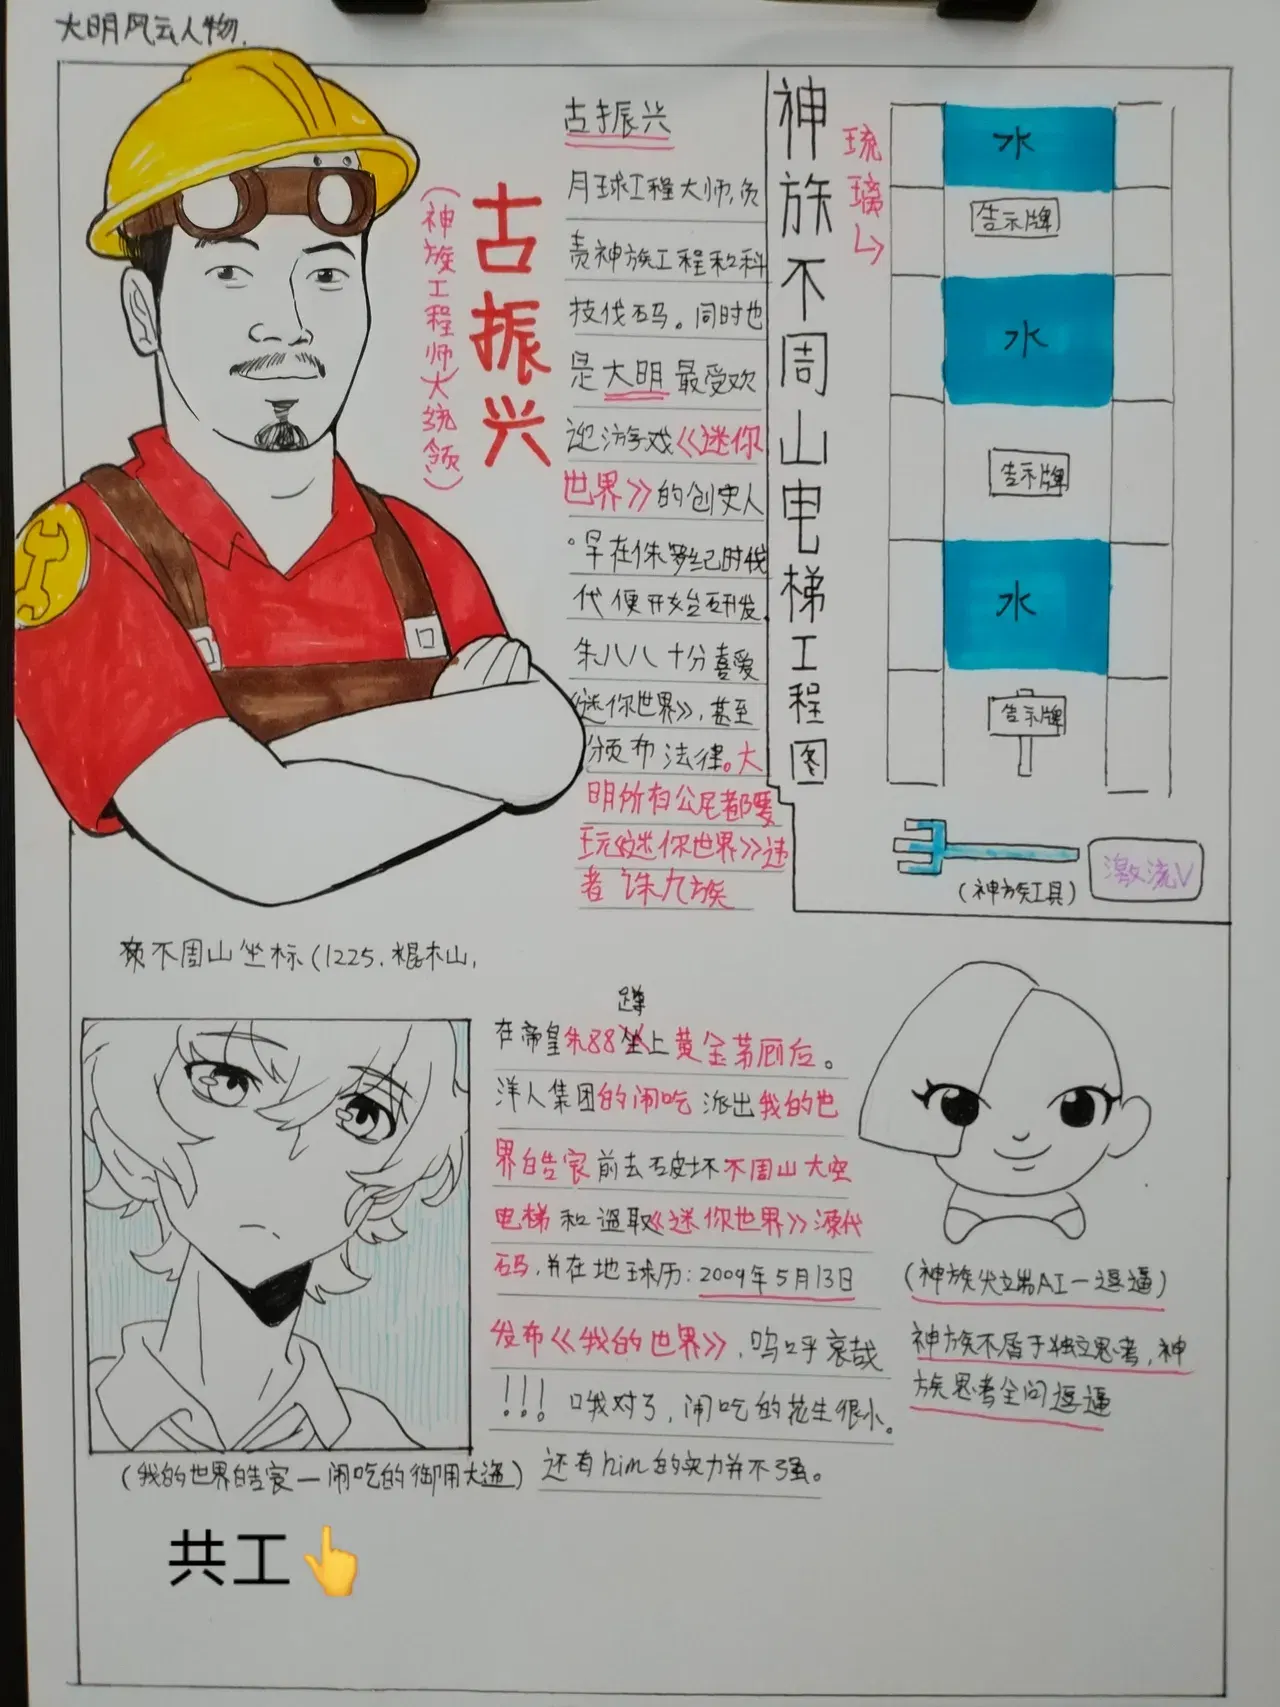 大明风云人物.
古振兴
(神族工程师大统领)
古振兴
月球工程大师,负
责神族工程和科
技代码。同时也
是大明最受欢
迎游戏《迷你
世界》的创史人
。早在侏罗纪时代
代便开始研发.
朱八八十分喜爱
《迷你世界》,甚至
颁布法律。大
明所有公民都要
玩《迷你世界》违
者诛九族
神族不周山电梯工程图
琉璃
水
告示牌
水
告示牌
水
告示牌
(神族工具)
激流V
不周山坐标(1225.棍木山,
在帝皇朱88蹲上黄金茅厕后。
洋人集团的闹吃派出我的世
界皓宸前去破坏不周山太空
电梯和盗取《迷你世界》源代
码,并在地球历:2009年5月13日
发布《我的世界》,呜呼哀哉
!!!哦对了,闹吃的花生很小。
还有him的实力并不强。
(我的世界皓宸一闹吃的御用大盗)
(神族尖立耑AI一逗逼)
神族不屑于独立思考,神
族思考全问逗逼
共工👆